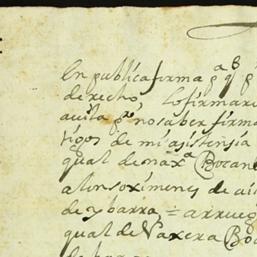 En publica firma pa q p
derecho, lo firmaro
avila pr no saber firma
tigos de mi asistensia
qual de naxa Bocane
alonso ximenes de ai
de ybarra = a rrueg
qual de Naxera Bo